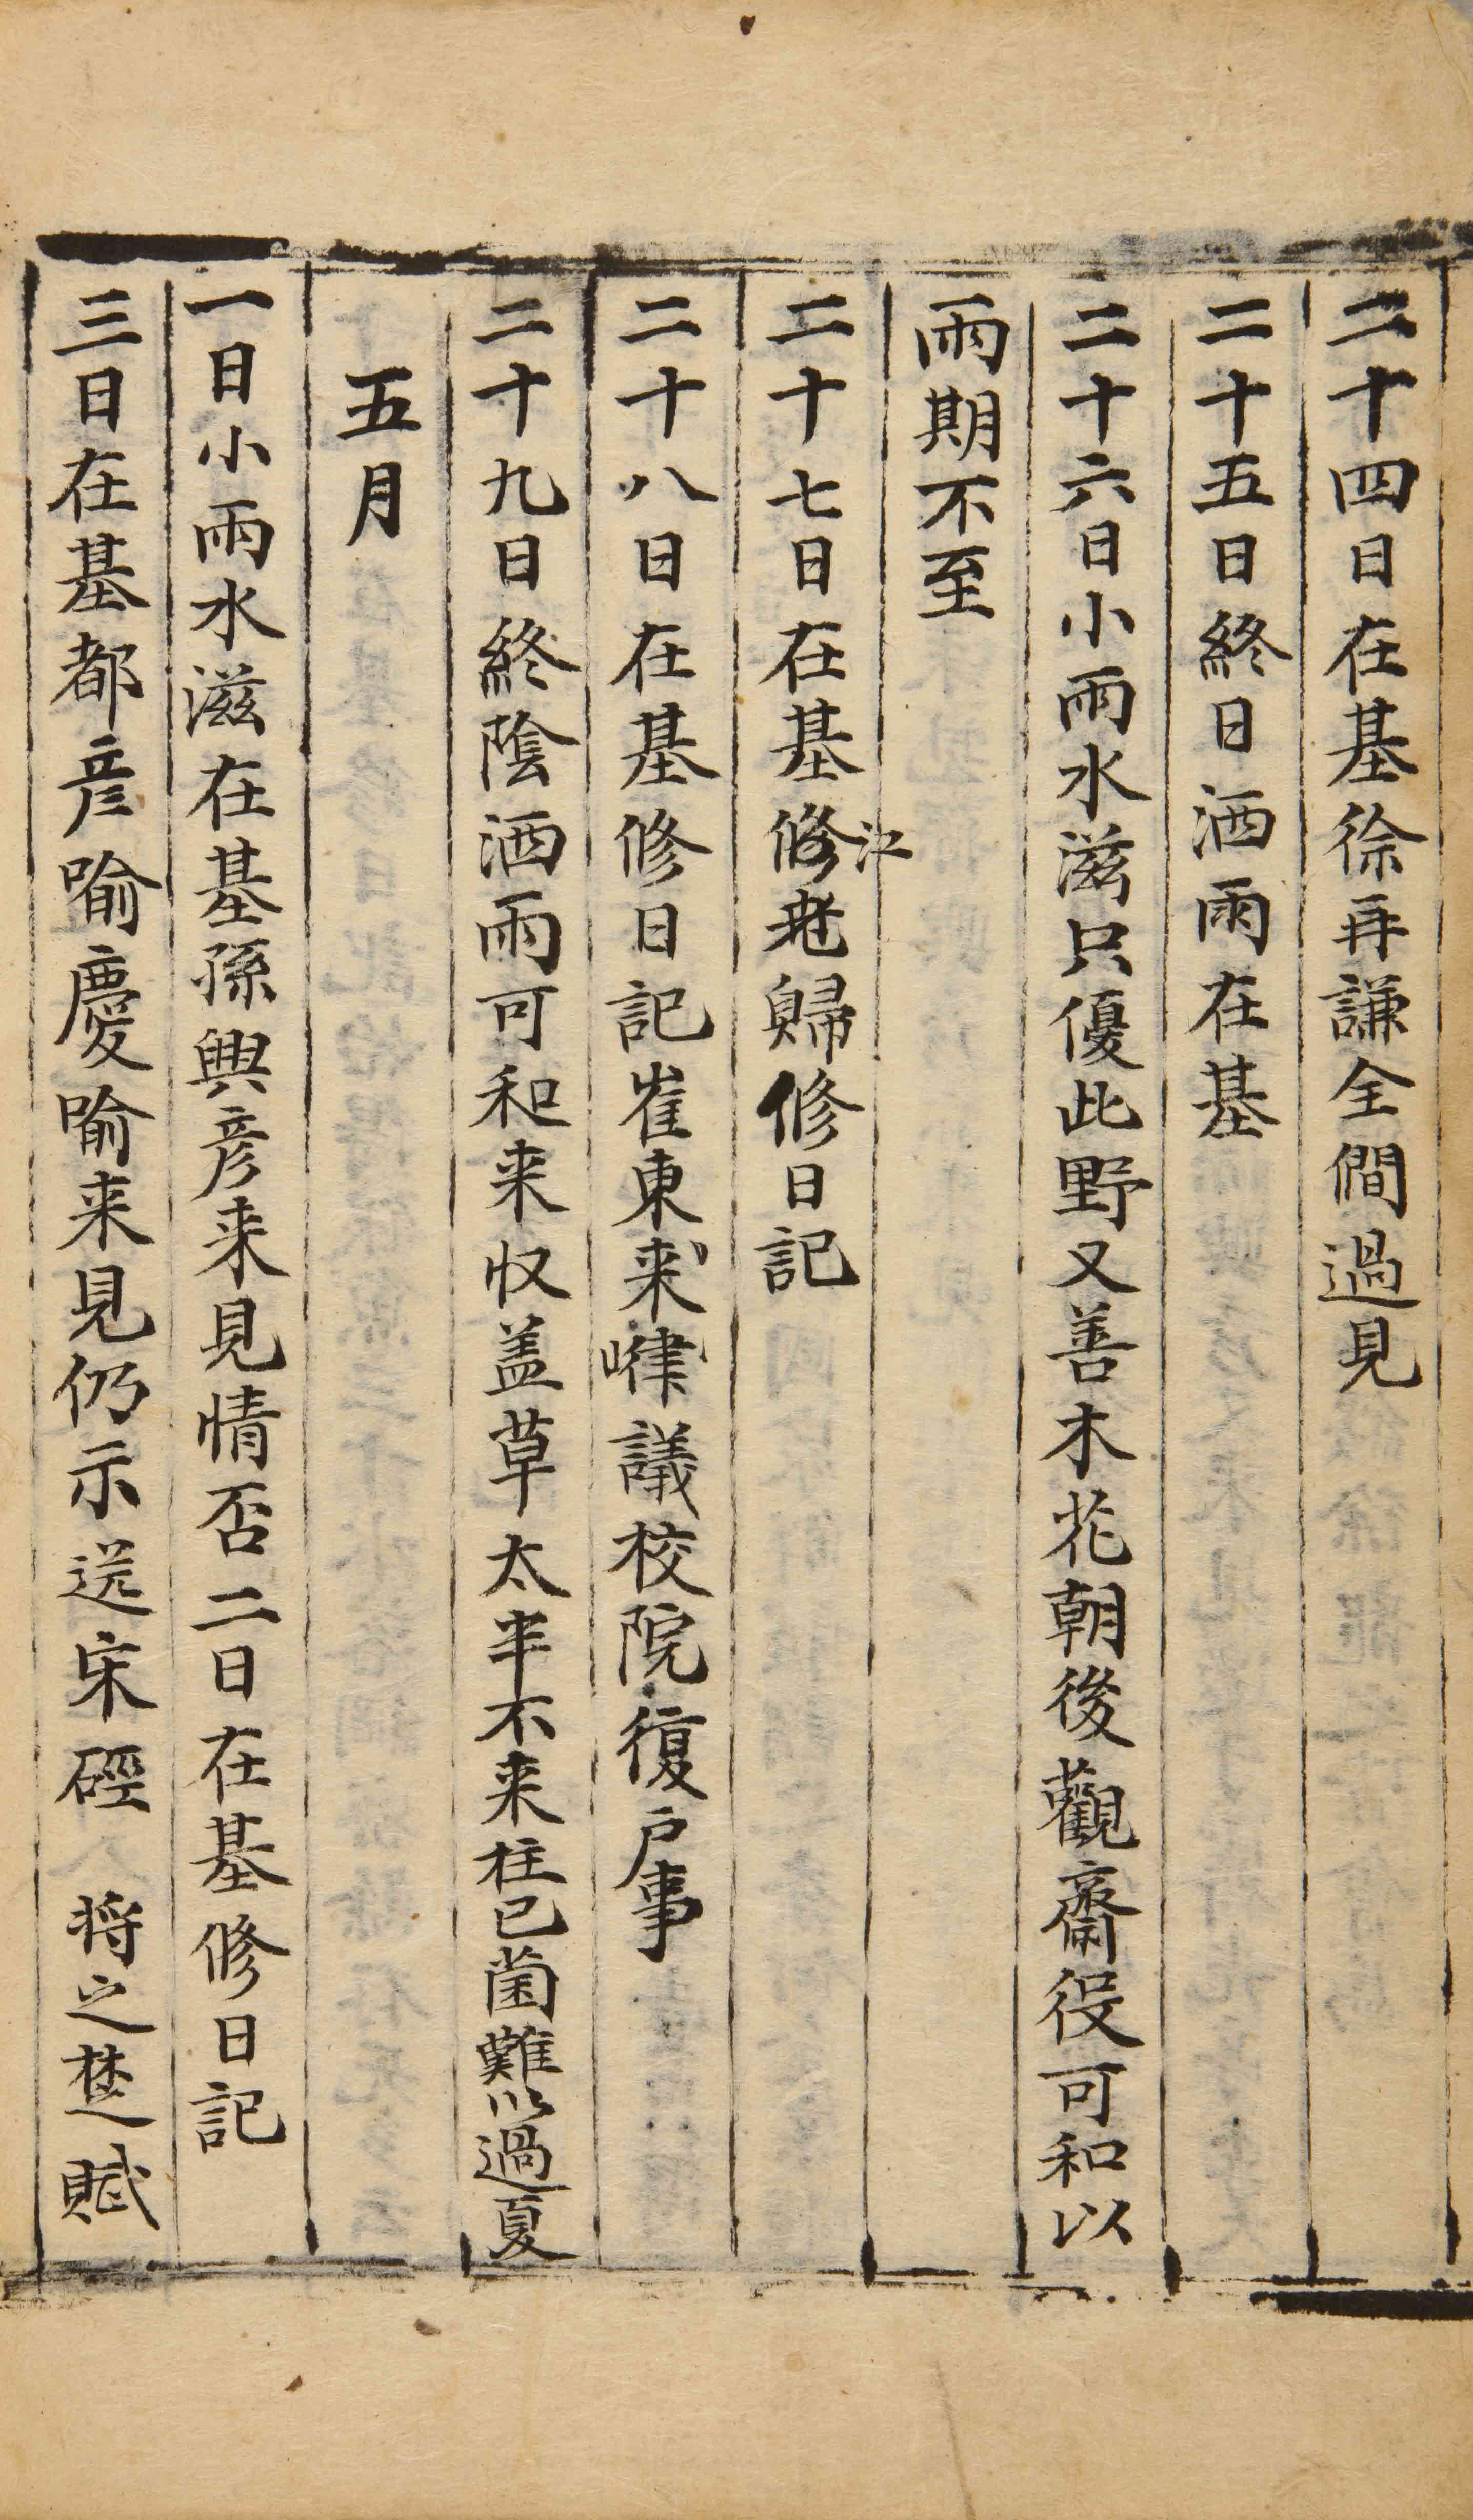 二十四日在基徐再謙全僩過見
二十五日終日洒雨在基
二十六日小雨水滋只優此野又善木花朝後觀齋役可和以
雨期不至
二十七日在基修江老歸修日記
二十八日在基修日記崔東来嵂議校院復戶事
二十九日終陰洒雨可和来収盖草太半不来柱已菌難以過夏
五月
一日小雨水滋在基孫興彦来見情否二日在基修日記
三日在基都彦喻慶喻来見仍示送宋硜 将之楚賦